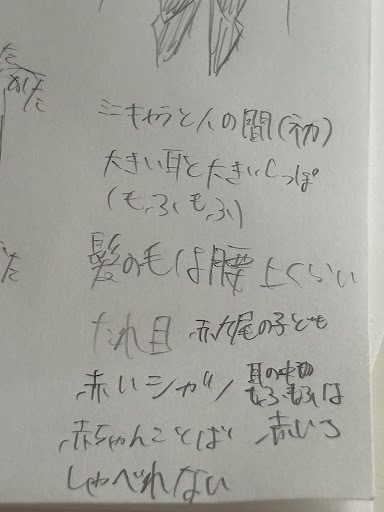 ミニキャラと人の間(初)
大きい耳と大きいしっぽ
(もふもふ)
髪の毛は腰上くらい
たれ目 赤九尾の子ども
赤いシガン 耳の中の
もふもふは
赤いろ
赤ちゃんことば
しゃべれない